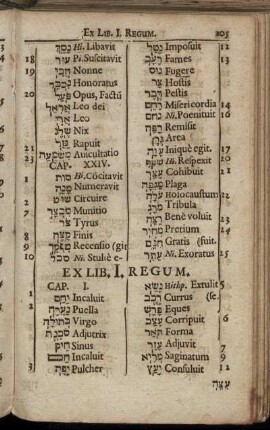 EX LIB. I. REGUM. 205
נסך Hi. Libavit
18 עור Pi. Suscitavit
19 הן Nonne
נכבד Honoratus
20 פעל Opus, Factũ
אריאל Leo dei
ארי Leo
שלג Nix
21 גזל Rapuit
23 משמעת Auscultatio
CAP. XXIV.
1 סות Hi. Cõcitavit
מנה Numeravit
2 שוט Circuire
7 מבצר Munitio
צר Tyrus
8 קצה Finis
9 מפקד Recensio (git
10 סכל Ni. Stultè e-
נטל Imposuit 12
רעב Fames 13
נוס Fugere
צר Hostis
דבר Pestis
רחמים Misericordia 14
נחם Ni. Poenituit 16
רפה Remisit
גרן Area
עוה Iniquè egit. 17
שקף Hi. Respexit 20
עצר Cohibuit 21
מגפה Plaga
עלה Holocaustum 22
מורג Tribula
רצה Benè voluit 23
מחיר Pretium 24
חנם Gratis (fuit.
עתר Ni. Exoratus 25
EX LIB. I. REGUM.
CAP. I.
1 יחם Incaluit
2 נערה Puella
בתולה Virgo
סכנת Adjutrix
חיק Sinus
חמם Incaluit
3 יפה Pulcher
נשא Hithp. Extulit 5
רכב Currus (se.
פרש Eques
עצב Corripuit 6
תאר Forma
עזר Adjuvit 7
מריא Saginatum 9
יעץ Consuluit 12
עצה